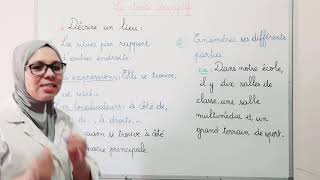 descriptif
* Décrire un lieu:
Le situer par rapport
d'autres endroits
expressions: Elle se trouve,
est situé...
Les localisateurs: à côté de,
de, à droite,...
maison se trouve à côté
pharmacie principale.
Enumérer ses différents
parties
ex: Dans notre école,
il y dix salles de
classe, une salle
multimédia et un
grand terrain de sport.